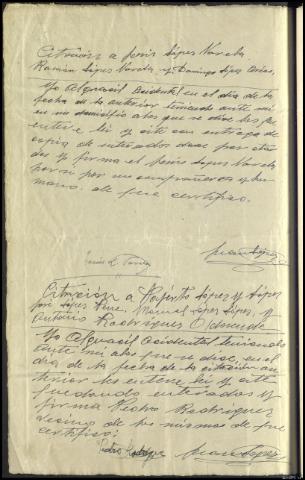 Citación a Jesús López Varela
Ramón López Varela y Domingo López Arias.
Yo Alguacil Accidental en el día de la
fecha de la anterior teniendo ante mí
en su domicilio a los que se dice les
enteré leí y cité con entrega de
copia de enterados doce por
y firma el Jesús López Varela
por sí por sus compañeros y her
mano. de que certifico.
Juan López
Jesús L. Varela
Citación a Rosberto López y López
José López López, Manuel López López, y
Antonio Rodríguez
Yo Alguacil Accidental teniendo
ante mí a los que se dice, en el
día de la fecha de la citación an
terior les enteré leí y cité
quedando enterados y
firma Pedro Rodríguez
vecino de los mismos de que
certifico:
Pedro Rodríguez
Juan López